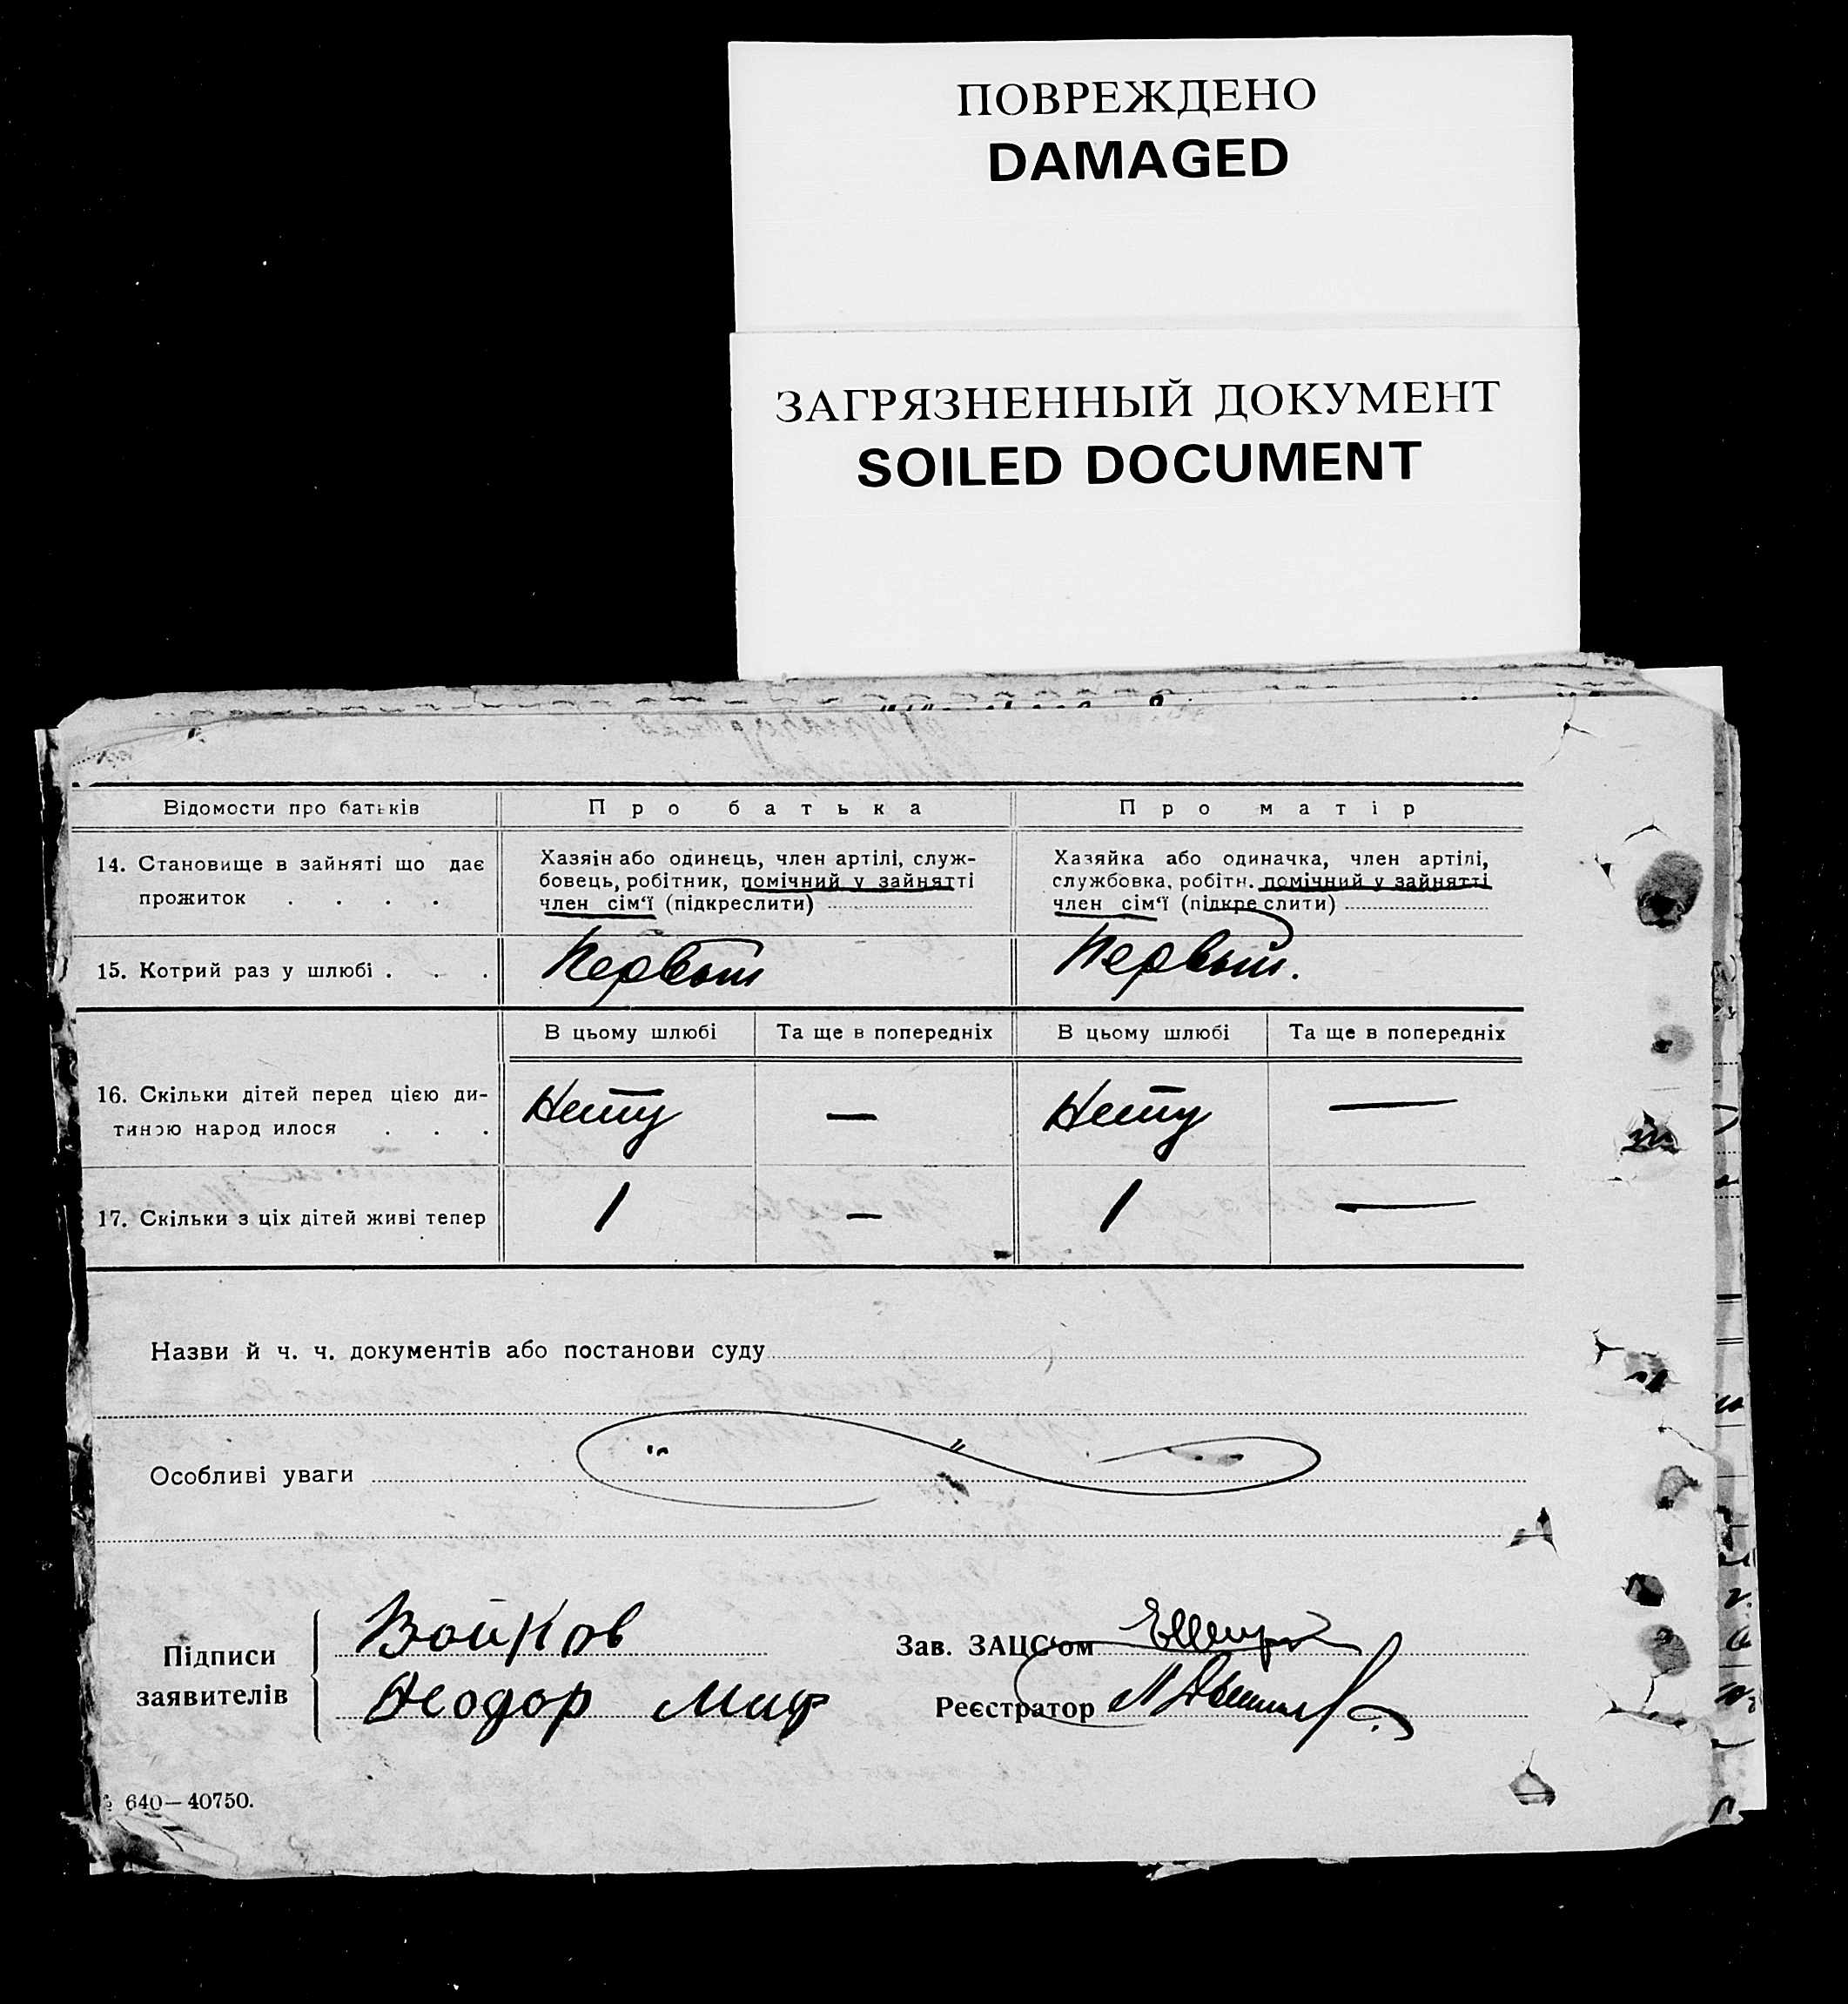 ПОВРЕЖДЕНО
DAMAGED
ЗАГРЯЗНЕННЫЙ ДОКУМЕНТ
SOILED DOCUMENT
Відомости про батьків Про батька Про матір
14. Становище в зайняті що дає
прожиток . . . .
Хазяін або одинець, член артілі, служ-
бовець, робітник, помічний у зайнятті
член сім'ї (підкреслити)
Хазяйка або одиначка, член артілі,
службовка, робітн. помічний у зайнятті
член сім'ї (підкреслити)
15. Котрий раз у шлюбі . . . Первый Первый.
В цьому шлюбі Та ще в попередніх В цьому шлюбі Та ще в попередніх
16. Скільки дітей перед цією ди-
тиною народилося . . . Нету — Нету —
17. Скільки з ціх дітей живі тепер 1 — 1 —
Назви й ч. ч. документів або постанови суду
Особливі уваги " "
Підписи
заявителів
Войков
Неодор Миф
Зав. ЗАЦС'ом
Реєстратор
640—40750.